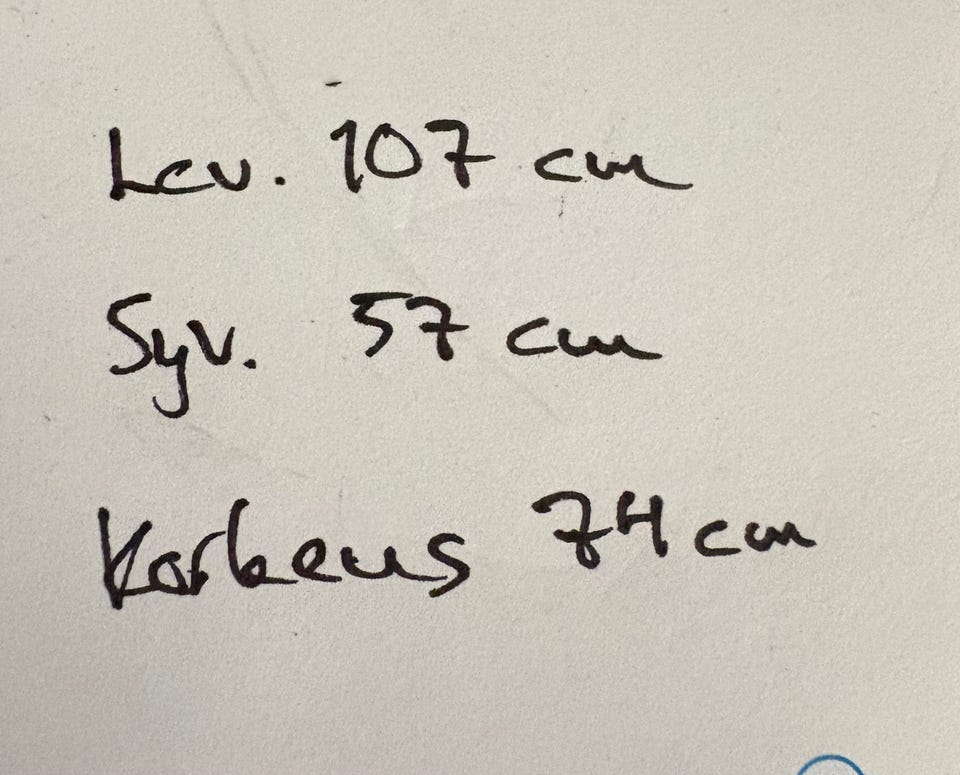 Lev. 107 cm
Syv. 57 cm
Korkeus 74 cm